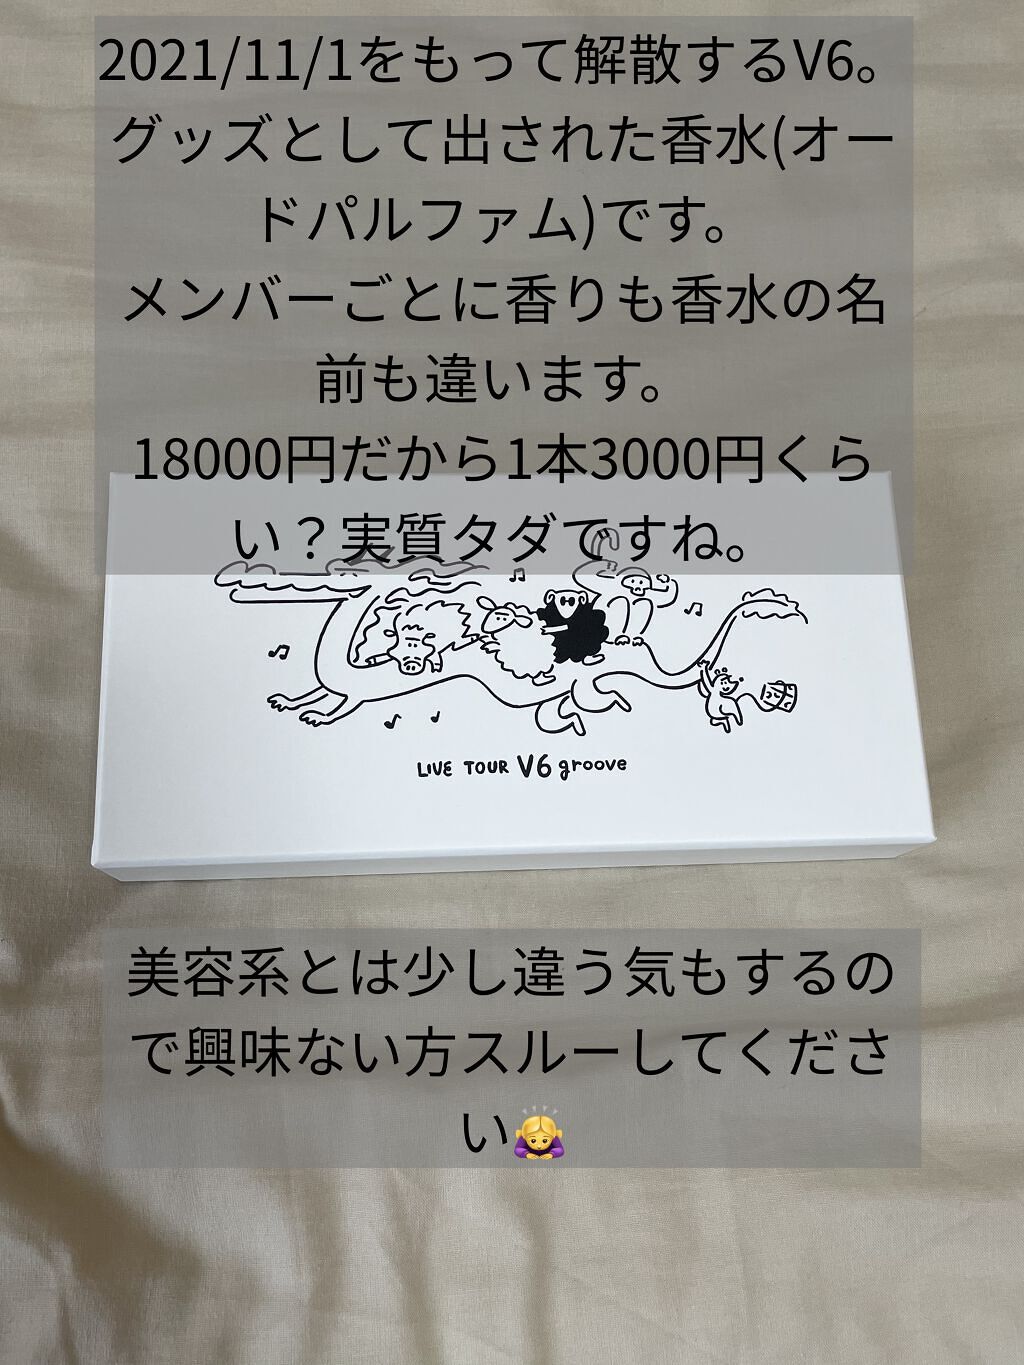 2021/11/1をもって解散するV6。
グッズとして出された香水(オー
ドパルファム)です。
メンバーごとに香りも香水の名
前も違います。
18000円だから1本3000円くら
い？実質タダですね。
LIVE TOUR V6 groove
美容系とは少し違う気もするの
で興味ない方スルーしてくださ
い🙇‍♀️